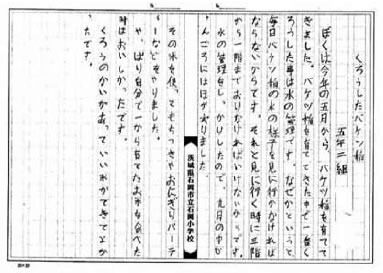 くろうしたバケツ稲
五年二組
ぼくは今年の五月から、バケツ稲を育てて
きました。バケツ稲を育ててきた中で一番く
ろうした事は水の管理です。なぜかというと
毎日バケツ稲の水の様子を見に行かなければ
ならないからです。それと見に行く時に三階
から一階までおりなければいけないからです。
水の管理をし、かんしたので、九月の中
んごろにはほがありました。
茨城県石岡市立石岡小学校
その米を使って、もちつきやおにぎりパーテ
ィーなどをやりました。
やっぱり自分で一から育てたお米を食べた
時はおいしかったです。
くろうのかいがあっていい米ができてよか
ったです。